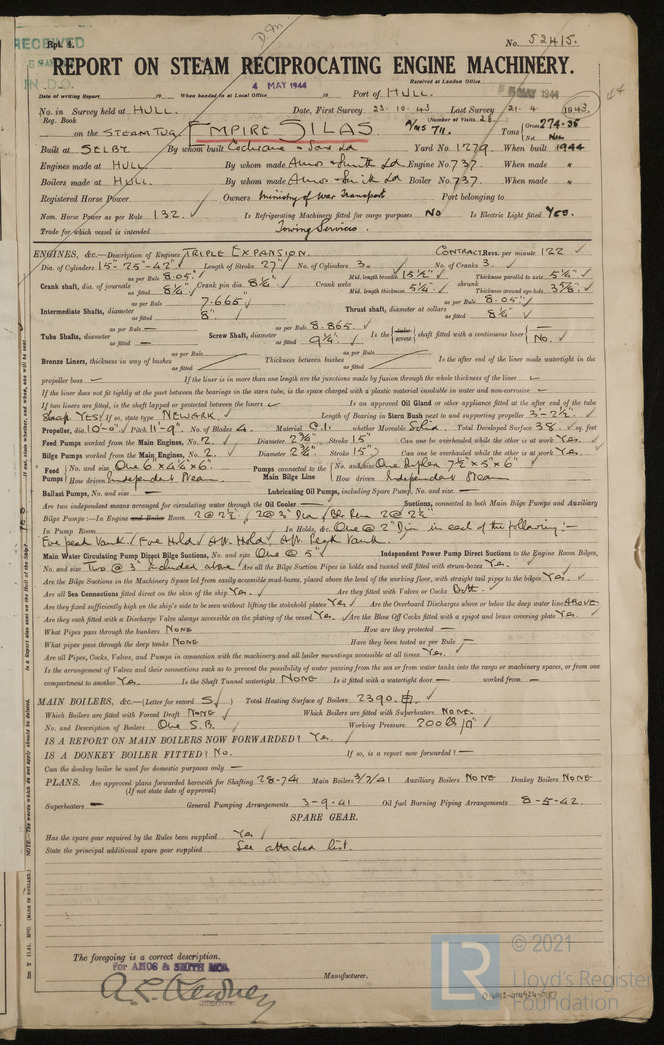 RECEIVED
6 MAY
IN D.O.
Rpt. 4.
No. 52415.
REPORT ON STEAM RECIPROCATING ENGINE MACHINERY.
4 MAY 1944
Received at London Office
MAY 1944
Date of writing Report 19 When handed in at Local Office 19 Port of HULL.
No. in Survey held at HULL. Date, First Survey 23-10-43 Last Survey 21-4 1943 44
Reg. Book
(Number of Visits 28)
on the STEAM TUG EMPIRE SILAS Tons Gross 274.35 Net
Built at SELBY By whom built Cochrane & Sons Ld Yard No. 1279 When built 1944
Engines made at HULL By whom made Amos & Smith Ld Engine No. 737. When made "
Boilers made at HULL. By whom made Amos & Smith Ld Boiler No. 737. When made "
Registered Horse Power Owners Ministry of War Transport Port belonging to
Nom. Horse Power as per Rule 132. Is Refrigerating Machinery fitted for cargo purposes No Is Electric Light fitted Yes.
Trade for which vessel is intended Towing Services.
ENGINES, &c.—Description of Engines TRIPLE EXPANSION. CONTRACT Revs. per minute 122
Dia. of Cylinders 15"-25"-42" Length of Stroke 27" No. of Cylinders 3. No. of Cranks 3.
Crank shaft, dia. of journals as per Rule 8.05" as fitted 8¼" Crank pin dia. 8¼" Crank webs Mid. length breadth 15½" Mid. length thickness 5¼" shrunk Thickness parallel to axis 5¼" Thickness around eye-hole 3⅝"
Intermediate Shafts, diameter as per Rule 7.665" as fitted 8" Thrust shaft, diameter at collars as per Rule 8.05" as fitted 8¼"
Tube Shafts, diameter as per Rule — as fitted — Screw Shaft, diameter as per Rule 8.865. as fitted 9¼" Is the tube screw shaft fitted with a continuous liner — No.
Bronze Liners, thickness in way of bushes as per Rule as fitted Thickness between bushes as per Rule as fitted Is the after end of the liner made watertight in the
propeller boss — If the liner is in more than one length are the junctions made by fusion through the whole thickness of the liner —
If the liner does not fit tightly at the part between the bearings in the stern tube, is the space charged with a plastic material insoluble in water and non-corrosive —
If two liners are fitted, is the shaft lapped or protected between the liners — Is an approved Oil Gland or other appliance fitted at the after end of the tube
shaft YES. If so, state type NEWARK. Length of Bearing in Stern Bush next to and supporting propeller 3'-2½"
Propeller, dia. 10'-0" Pitch 11'-9" No. of Blades 4. Material C.I. whether Moveable Solid Total Developed Surface 38. sq. feet
Feed Pumps worked from the Main Engines, No. 2. Diameter 2¾" Stroke 15" Can one be overhauled while the other is at work Yes.
Bilge Pumps worked from the Main Engines, No. 2. Diameter 2¾" Stroke 15" Can one be overhauled while the other is at work Yes.
Feed Pumps No. and size One 6 x 4¼ x 6" How driven Independent Steam Pumps connected to the Main Bilge Line No. and size One Duplex 7½" x 5" x 6" How driven Independent Steam
Ballast Pumps, No. and size — Lubricating Oil Pumps, including Spare Pump, No. and size —
Are two independent means arranged for circulating water through the Oil Cooler — Suctions, connected to both Main Bilge Pumps and Auxiliary
Bilge Pumps :—In Engine and Boiler Room 2 @ 2½"
In Pump Room — In Holds, &c. One @ 2" Dia in each of the following :—
Fore peak tank. Fore Hold. Aft. Hold. Aft. Peak Tank.
Main Water Circulating Pump Direct Bilge Suctions, No. and size One @ 5" Independent Power Pump Direct Suctions to the Engine Room Bilges,
No. and size Two @ 3" included above Are all the Bilge Suction Pipes in holds and tunnel well fitted with strum-boxes Yes.
Are the Bilge Suctions in the Machinery Space led from easily accessible mud-boxes, placed above the level of the working floor, with straight tail pipes to the bilges Yes.
Are all Sea Connections fitted direct on the skin of the ship Yes. Are they fitted with Valves or Cocks Both.
Are they fixed sufficiently high on the ship's side to be seen without lifting the stokehold plates Yes Are the Overboard Discharges above or below the deep water line ABOVE
Are they each fitted with a Discharge Valve always accessible on the plating of the vessel Yes Are the Blow Off Cocks fitted with a spigot and brass covering plate Yes.
What Pipes pass through the bunkers NONE How are they protected —
What pipes pass through the deep tanks NONE Have they been tested as per Rule —
Are all Pipes, Cocks, Valves, and Pumps in connection with the machinery and all boiler mountings accessible at all times Yes.
Is the arrangement of Valves and their connections such as to prevent the possibility of water passing from the sea or from water tanks into the cargo or machinery spaces, or from one
compartment to another Yes. Is the Shaft Tunnel watertight NONE Is it fitted with a watertight door — worked from —
MAIN BOILERS, &c.—(Letter for record S) Total Heating Surface of Boilers 2390.
Which Boilers are fitted with Forced Draft NONE Which Boilers are fitted with Superheaters NONE.
No. and Description of Boilers One S.B. Working Pressure 200 lb/□"
IS A REPORT ON MAIN BOILERS NOW FORWARDED? Yes.
IS A DONKEY BOILER FITTED? No. If so, is a report now forwarded? —
Can the donkey boiler be used for domestic purposes only —
PLANS. Are approved plans forwarded herewith for Shafting 28-7-41 Main Boilers 3/7/41 Auxiliary Boilers NONE Donkey Boilers NONE
(If not state date of approval)
Superheaters — General Pumping Arrangements 3-9-41. Oil fuel Burning Piping Arrangements 8-5-42.
SPARE GEAR.
Has the spare gear required by the Rules been supplied Yes
State the principal additional spare gear supplied See attached list.
The foregoing is a correct description.
FOR AMOS & SMITH
Manufacturer.
© 2021
Lloyd's Register
Foundation